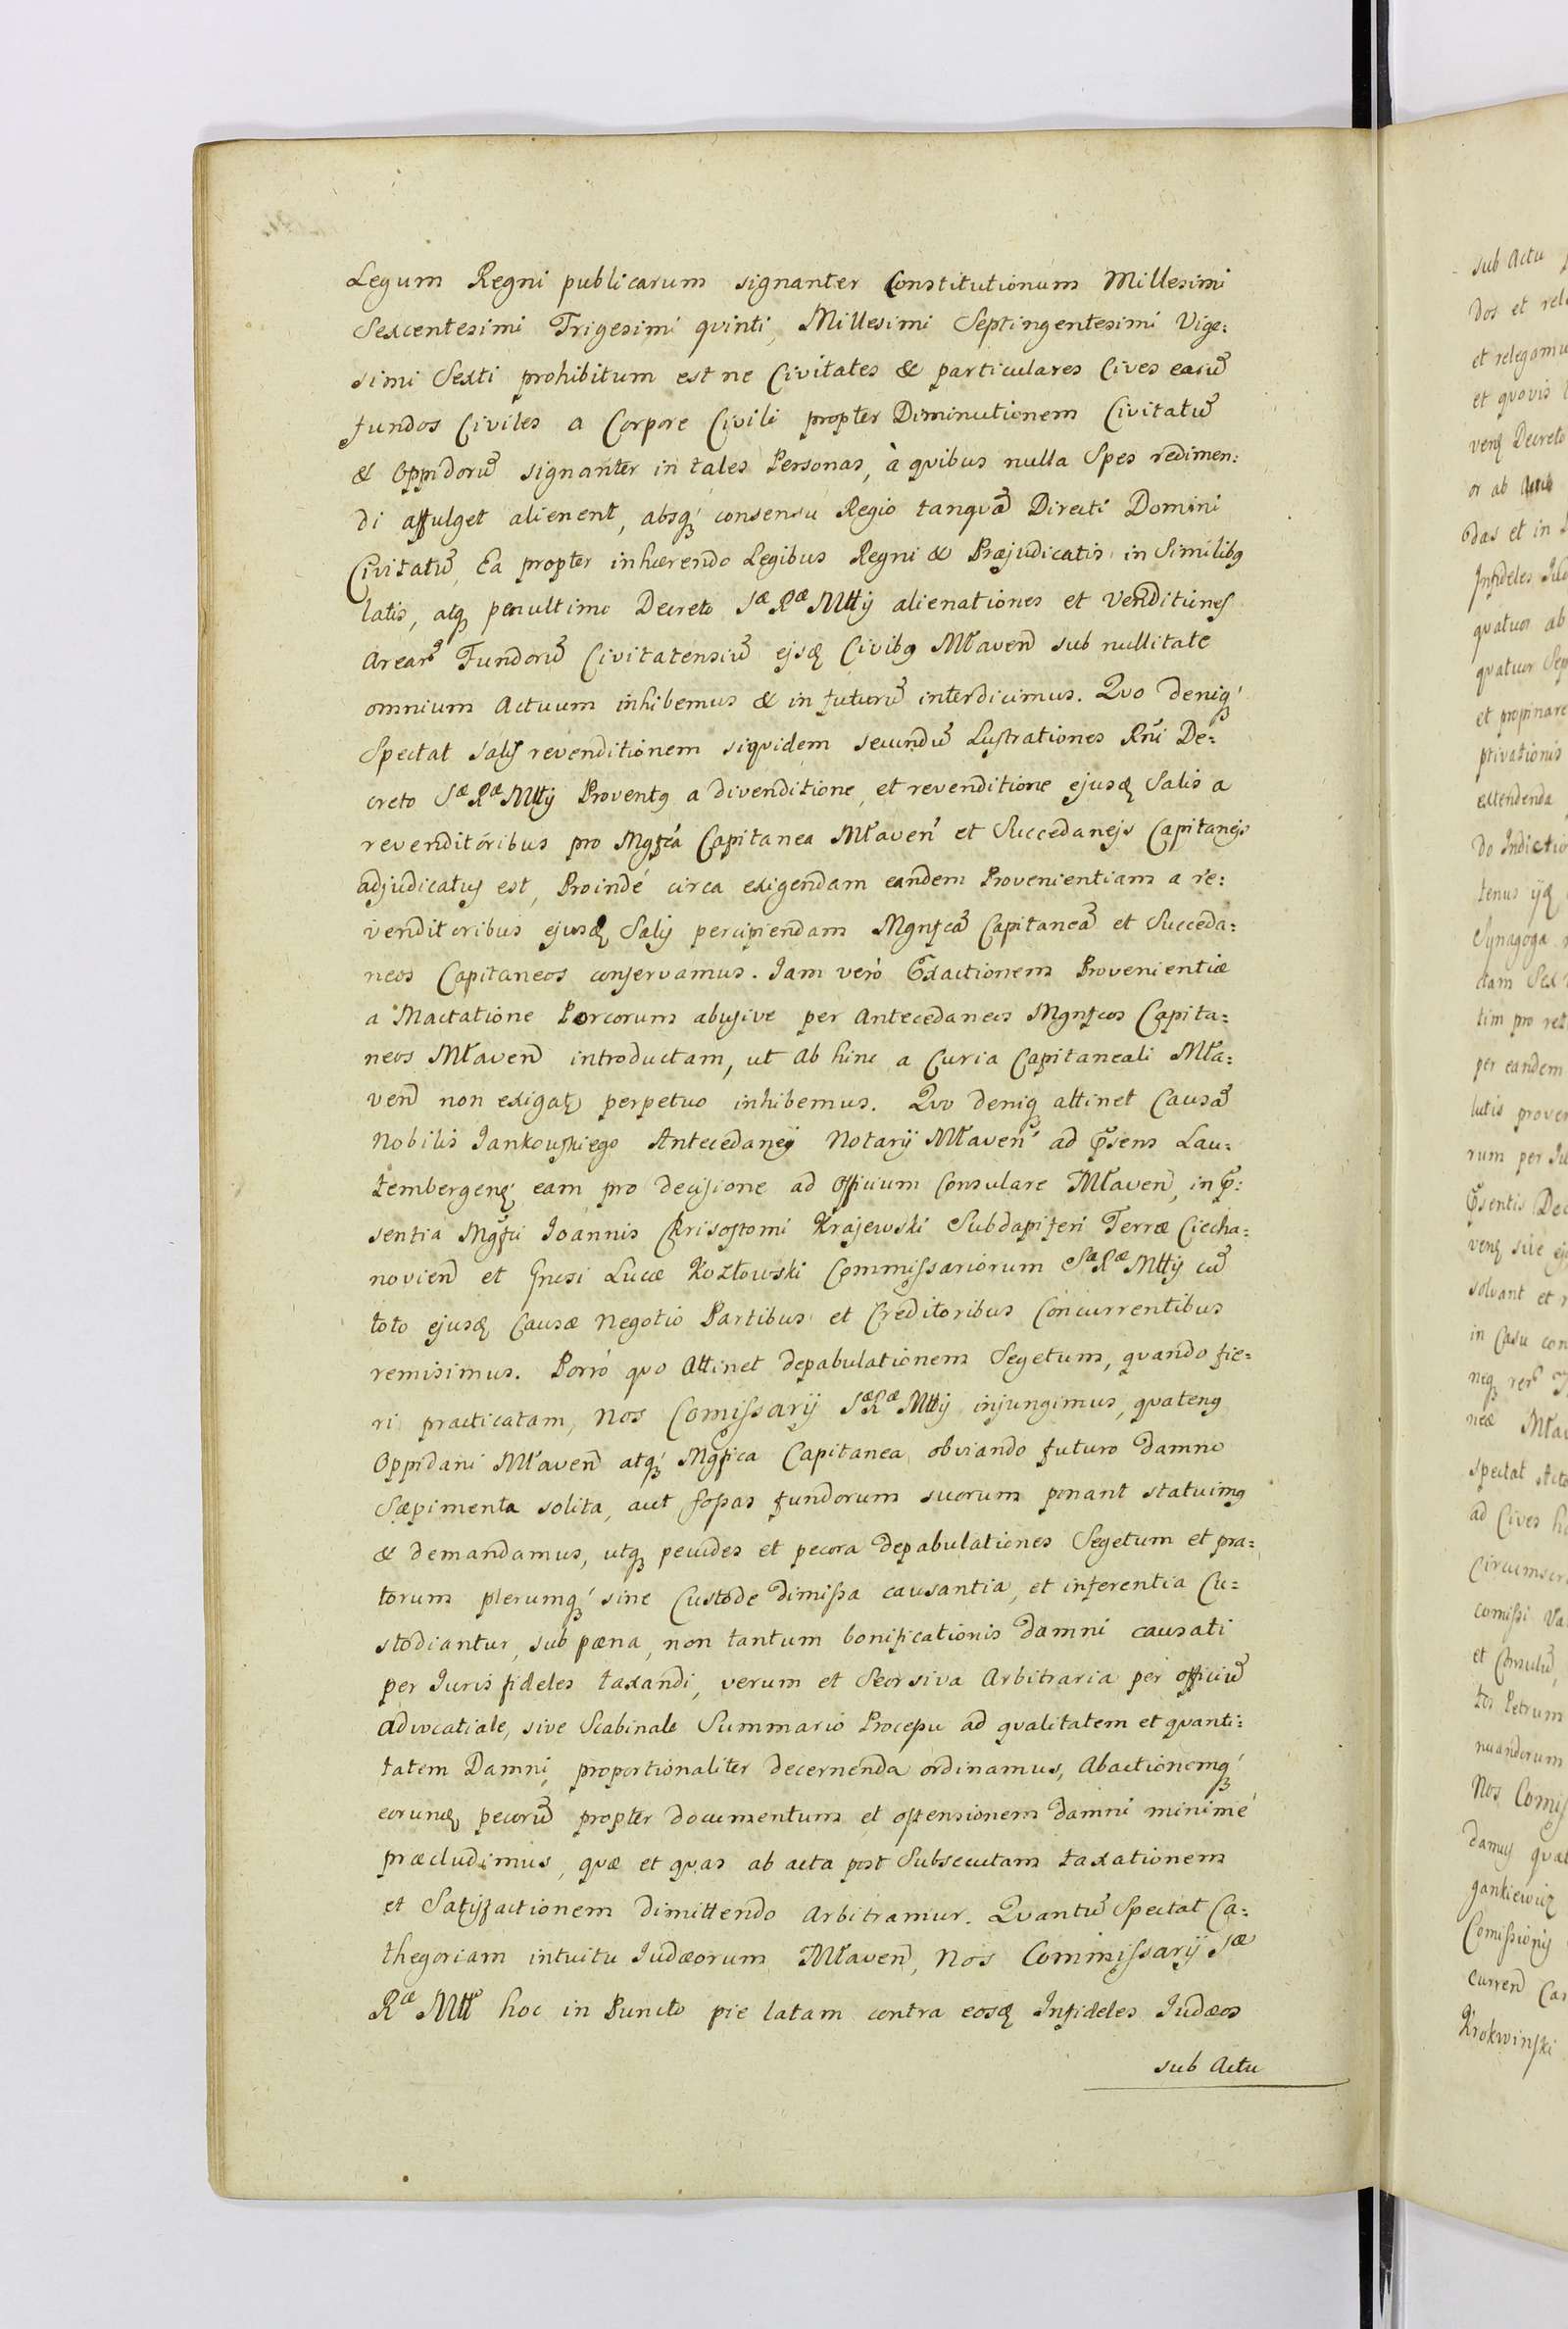 Legum Regni publicarum signanter Constitutionum Millesimi
Sexcentesimi Trigesimi qvinti, Millesimi Septingentesimi Vige:
simi Sexti prohibitum est ne Civitates & particulares Cives earū
fundos Civiles a Corpore Civili propter Diminutionem Civitatū
& Oppidorū signanter in tales Personas, à qvibus nulla Spes redimen:
di affulget alienent, absq́ consensu Regio tanqvā Directi Domini
Civitatū, Ea propter inhærendo Legibus Regni & Præjudicatis in Similibꝯ
latis, atqꝫ penultimo Decreto Sæ Ræ Mttij alienationes et Venditiones
Arearū Fundorū Civitatensiū ejsdꝫ Civibꝯ Mławen̄ sub nullitate
omnium Actuum inhibemus & in futurū interdicimus. Qvo deniq́ꝫ
Spectat Salis revenditionem siqvidem secundū Lustrationes Rńi De:
creto Sæ Ræ Mttij Proventꝯ a divenditione, et revenditione ejusdꝫ Salis a
revenditóribus pro Mgfcá Capitanea Młaven̄ et Succedanejs Capitanejs
adjudicatus est, Proindé circa exigendam eandem Provenientiam a re:
venditoribus ejusdꝫ Salis percipiendam Mgnfcā Capitaneā et Succeda:
neos Capitaneos conservamus. Iam veró Exactionem Provenientiæ
a Mactatione Porcorum abusive per Antecedaneos Mgnfcos Capita:
neos Młaven̄ introductam, ut ab hinc a Curia Capitaneali Mła:
ven̄ non exigatꝫ perpetuo inhibemus. Qvo deniqꝫ attinet Causā
Nobilis Iankowskiego Antecedanej Notarij Młaven̄ ad p̄sens Lau:
tembergenꝫ eam pro decisione ad Officium Consulare Mławen̄, in p̄:
sentia Mgfci Ioannis Chrisostomi Krajewski Subdapiferi Terræ Ciecha:
novien̄ et Gnosi Lucæ Kozłowski Commissariorum Sæ Ræ Mttij cū
toto ejusdꝫ Causæ Negotio Partibus et Creditoribus Concurrentibus
remisimus. Porró qvo Attinet depabulationem Segetum, qvando fie:
ri practicatam, Nos Comissarij Sæ Ræ Mttij injungimus, qvatenꝯ
Oppidani Młaven̄ atq́ꝫ Mgfica Capitanea obviando futuro damno
Sæpimenta solita, aut fossas fundorum suorum ponant statuimꝯ
& demandamus, utqꝫ pecudes et pecora depabulationes Segetum et pra:
torum plerumq́ꝫ sine Custode dimissa causantia, et inferentia Cu:
stodiantur, sub pæna, non tantum bonificationis damni causati
per Iuris fideles taxandi, verum et Seorsiva Arbitraria per officiū
Advocatiale, sive Scabinale Summario Processu ad qvalitatem et qvanti:
tatem Damni, proportionaliter decernenda ordinamus, Abactionemq́ꝫ
eorundꝫ pecorū propter documentum et ostensionem damni minimé
præcludimus, qvæ et qvas ab acta post Subsecutam taxationem
et Satisfactionem dimittendo Arbitramur. Qvantū Spectat Ca:
thegoriam intuitu Iudæorum Młaven̄, Nos Commissarij Sæ
Ræ Mtt hoc in Puncto pie latam contra eosdꝫ Infideles Iudæos
sub Actu
sub Actu
dos et
et relegamu
et qvovis
venꝫ Decreto
or ab
das et in
Infideles
qvatuor ab
qvatuor Sep
et propinare
privationis
extendenda
do Indictio
tenus ijdꝫ
Synagoga
dam Sex
tim pro
per eandem
lutis
rum per
p̄sentis
venꝫ sive
solvant et
in Casu
neqꝫ
neæ
spectat
ad Cives
circumscr
comissi
et Consulū
tos Petrum
nuandorum
Nos Comis
damus
gankiewicz
Comissionis
Curren̄
Krokwinski